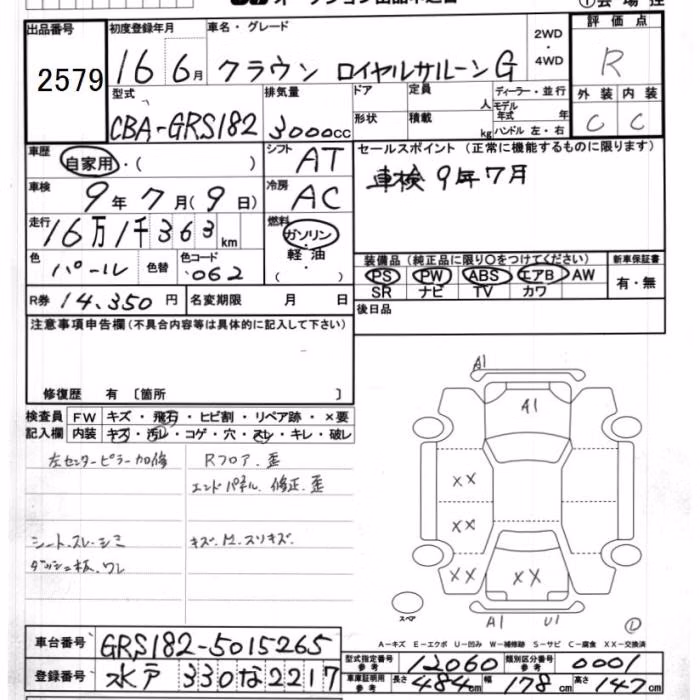 ① 会場控
出品番号 初度登録年月 車名・グレード 2WD・4WD 評価点
2579 16年 6月 クラウン ロイヤルサルーン G R
型式 排気量 ドア 定員 人 ディーラー・並行 外装 内装
CBA-GRS182 3000cc 形状 積載 kg モデル年式 年 ハンドル 左・右 C C
車歴 自家用・( ) シフト AT セールスポイント (正常に機能するものに限ります)
車検 9年7月(9日) 冷房 AC 車検 9年7月
走行 16万1千363km 燃料 ガソリン・軽油・( )
色 パール 色替 色コード 062 装備品 (純正品に限り○をつけてください) 新車保証書
PS PW ABS エアB AW 有・無
SR ナビ TV カワ
R券 14,350円 名変期限 月 日 後日品
注意事項申告欄(不具合内容等は具体的に記入して下さい)
修復歴 有 〔箇所 〕
検査員 FW キズ・飛石・ヒビ割・リペア跡・×要
記入欄 内装 キズ・汚レ・コゲ・穴・スレ・キレ・破レ
左センターピラー加修 Rフロア.歪
エンドパネル.修正.歪
シート.スレ.シミ キズ.M.スリキズ.
ダッシュ板.ワレ
A1
A1
XX
XX
XX XX
スペア A1 U1
A-キズ E-エクボ U-凹み W-補修跡 S-サビ C-腐食 XX-交換済
車台番号 GRS182-5015265
型式指定番号 参考 12060 類別区分番号 参考 0001
登録番号 水戸 330 な 2217
車庫証明用 参考 長さ 484cm 幅 178cm 高さ 147cm